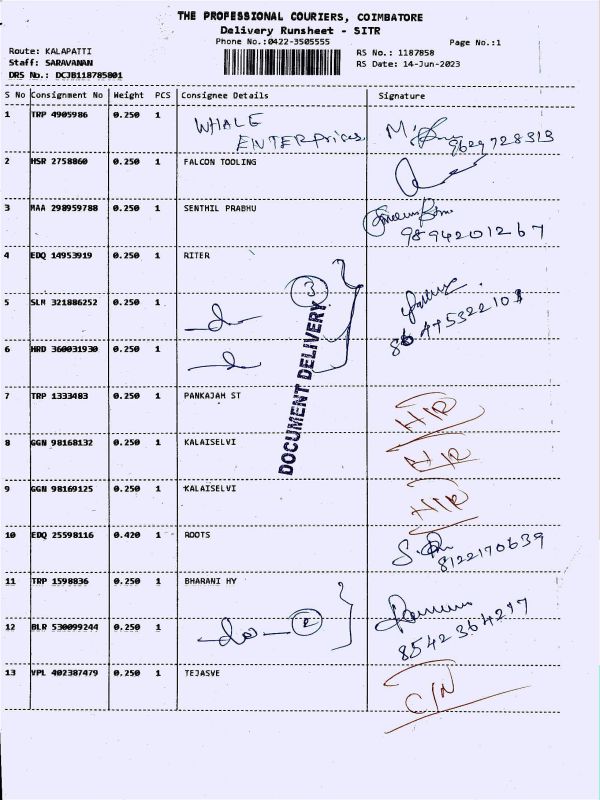 THE PROFESSIONAL COURIERS, COIMBATORE
Delivery Runsheet - SITR
Phone No.:0422-3505555
Page No.:1
Route: KALAPATTI
RS No.: 1187858
Staff: SARAVANAN
RS Date: 14-Jun-2023
DRS No.: DCJB118785801
S No Consignment No Weight PCS Consignee Details Signature
1 TRP 4905986 0.250 1 WHALE ENTERPrices
9629728313
2 HSR 2758860 0.250 1 FALCON TOOLING
3 MAA 298959788 0.250 1 SENTHIL PRABHU
9894201267
4 EDQ 14953919 0.250 1 RITER
3
5 SLM 321886252 0.250 1 -do-
6 HRD 360031930 0.250 1 -do-
DOCUMENT DELIVERY
7 TRP 1333483 0.250 1 PANKAJAH ST HIR
8 GGN 98168132 0.250 1 KALAISELVI HIR
9 GGN 98169125 0.250 1 KALAISELVI HIR
10 EDQ 25598116 0.420 1 ROOTS
8122170639
11 TRP 1598836 0.250 1 BHARANI HY
12 BLR 530099244 0.250 1 -do- 2
8542364297
13 VPL 402387479 0.250 1 TEJASVE C/N